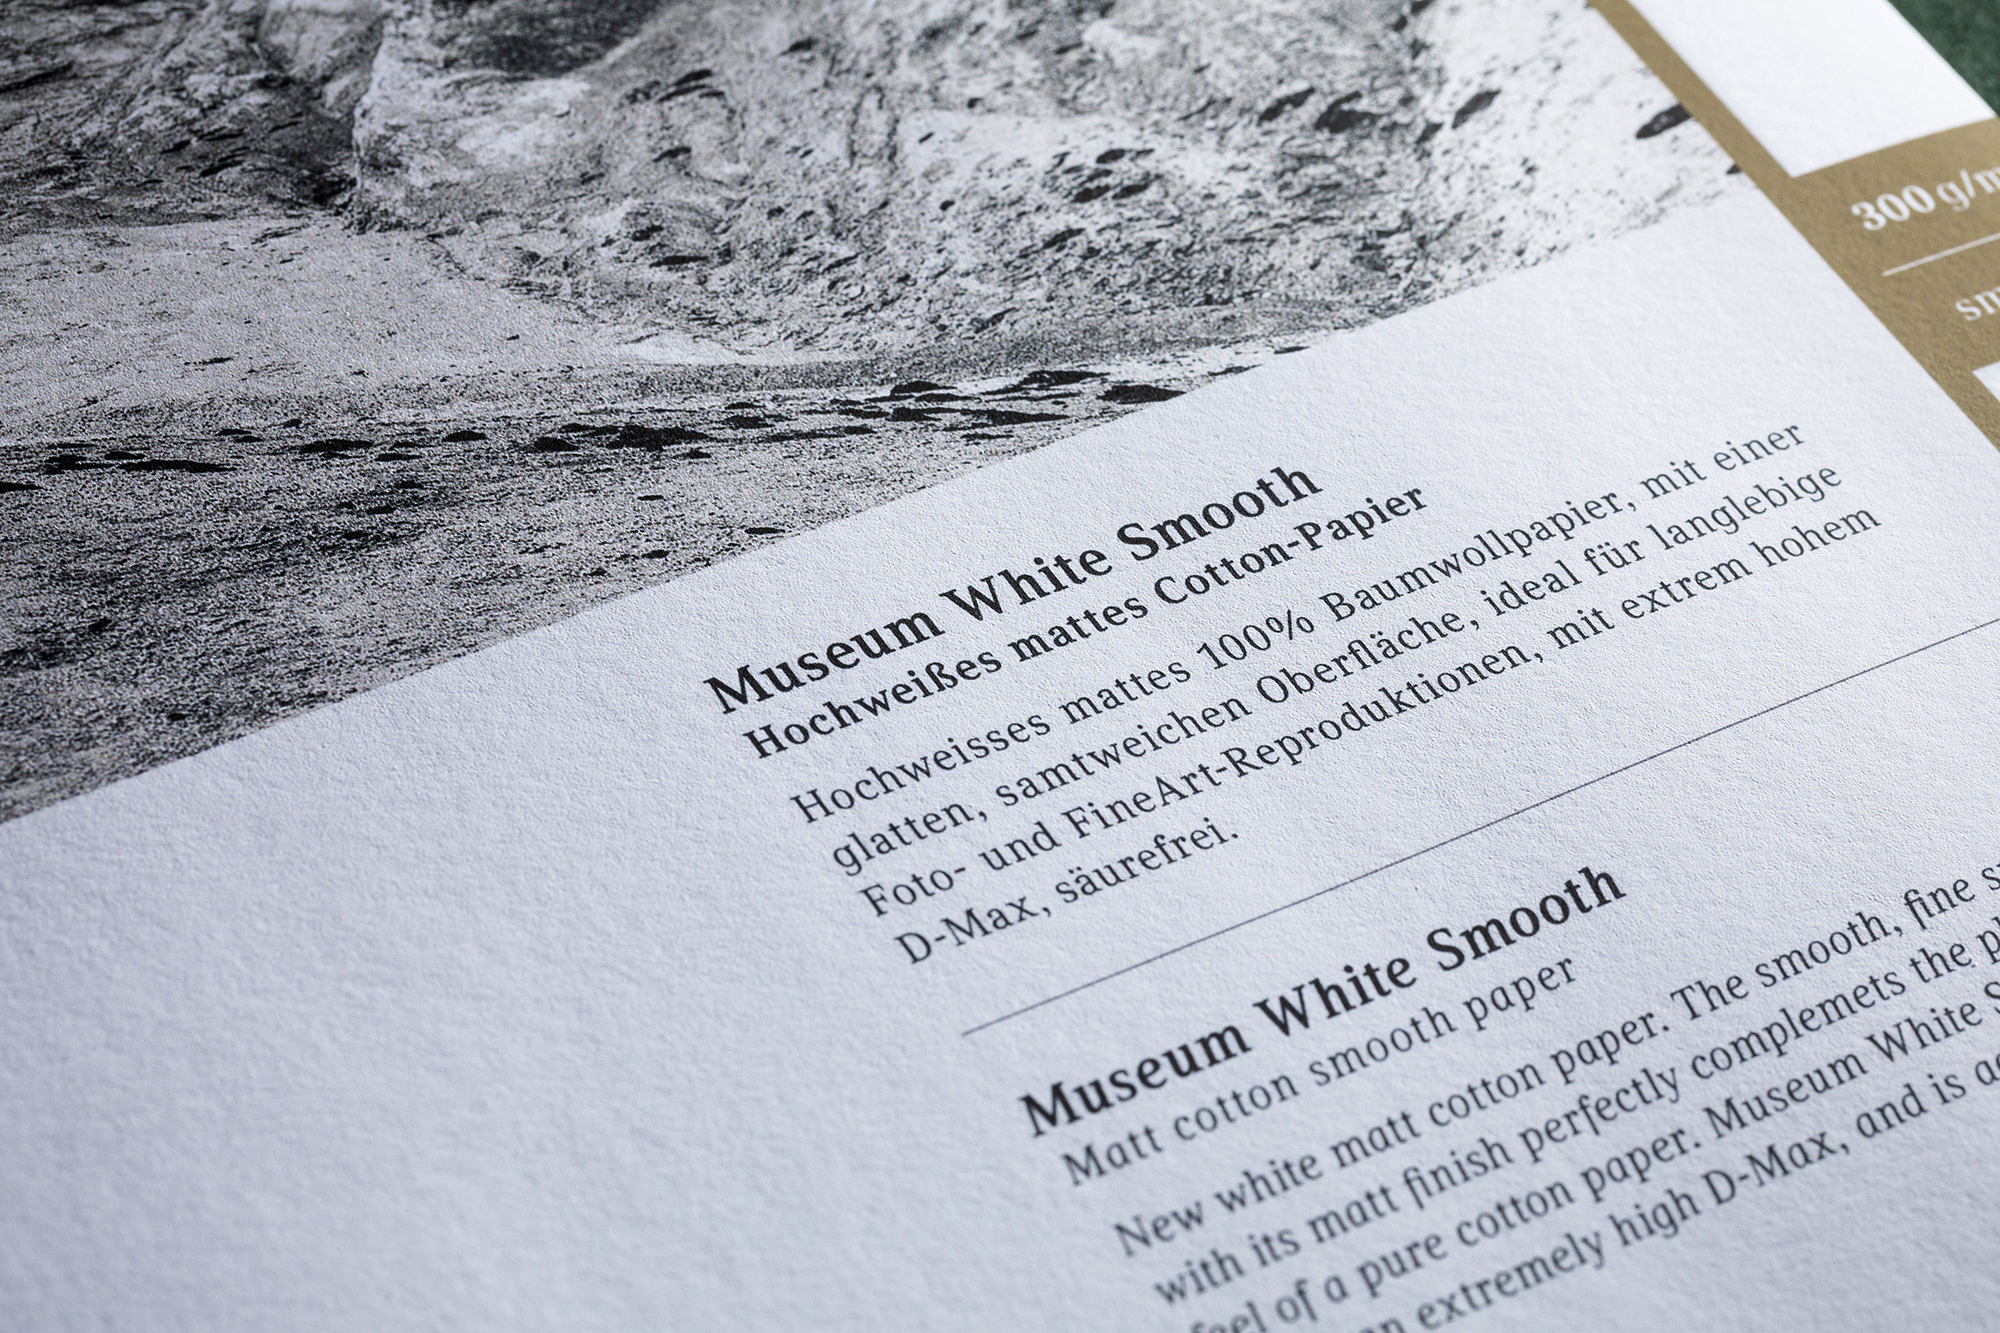 300 g/m
Museum White Smooth
Hochweißes mattes Cotton-Papier
Hochweisses mattes 100% Baumwollpapier, mit einer
glatten, samtweichen Oberfläche, ideal für langlebige
Foto- und FineArt-Reproduktionen, mit extrem hohem
D-Max, säurefrei.
Museum White Smooth
Matt cotton smooth paper
New white matt cotton paper. The smooth, fine
with its matt finish perfectly complemets the
feel of a pure cotton paper. Museum White
an extremely high D-Max, and is